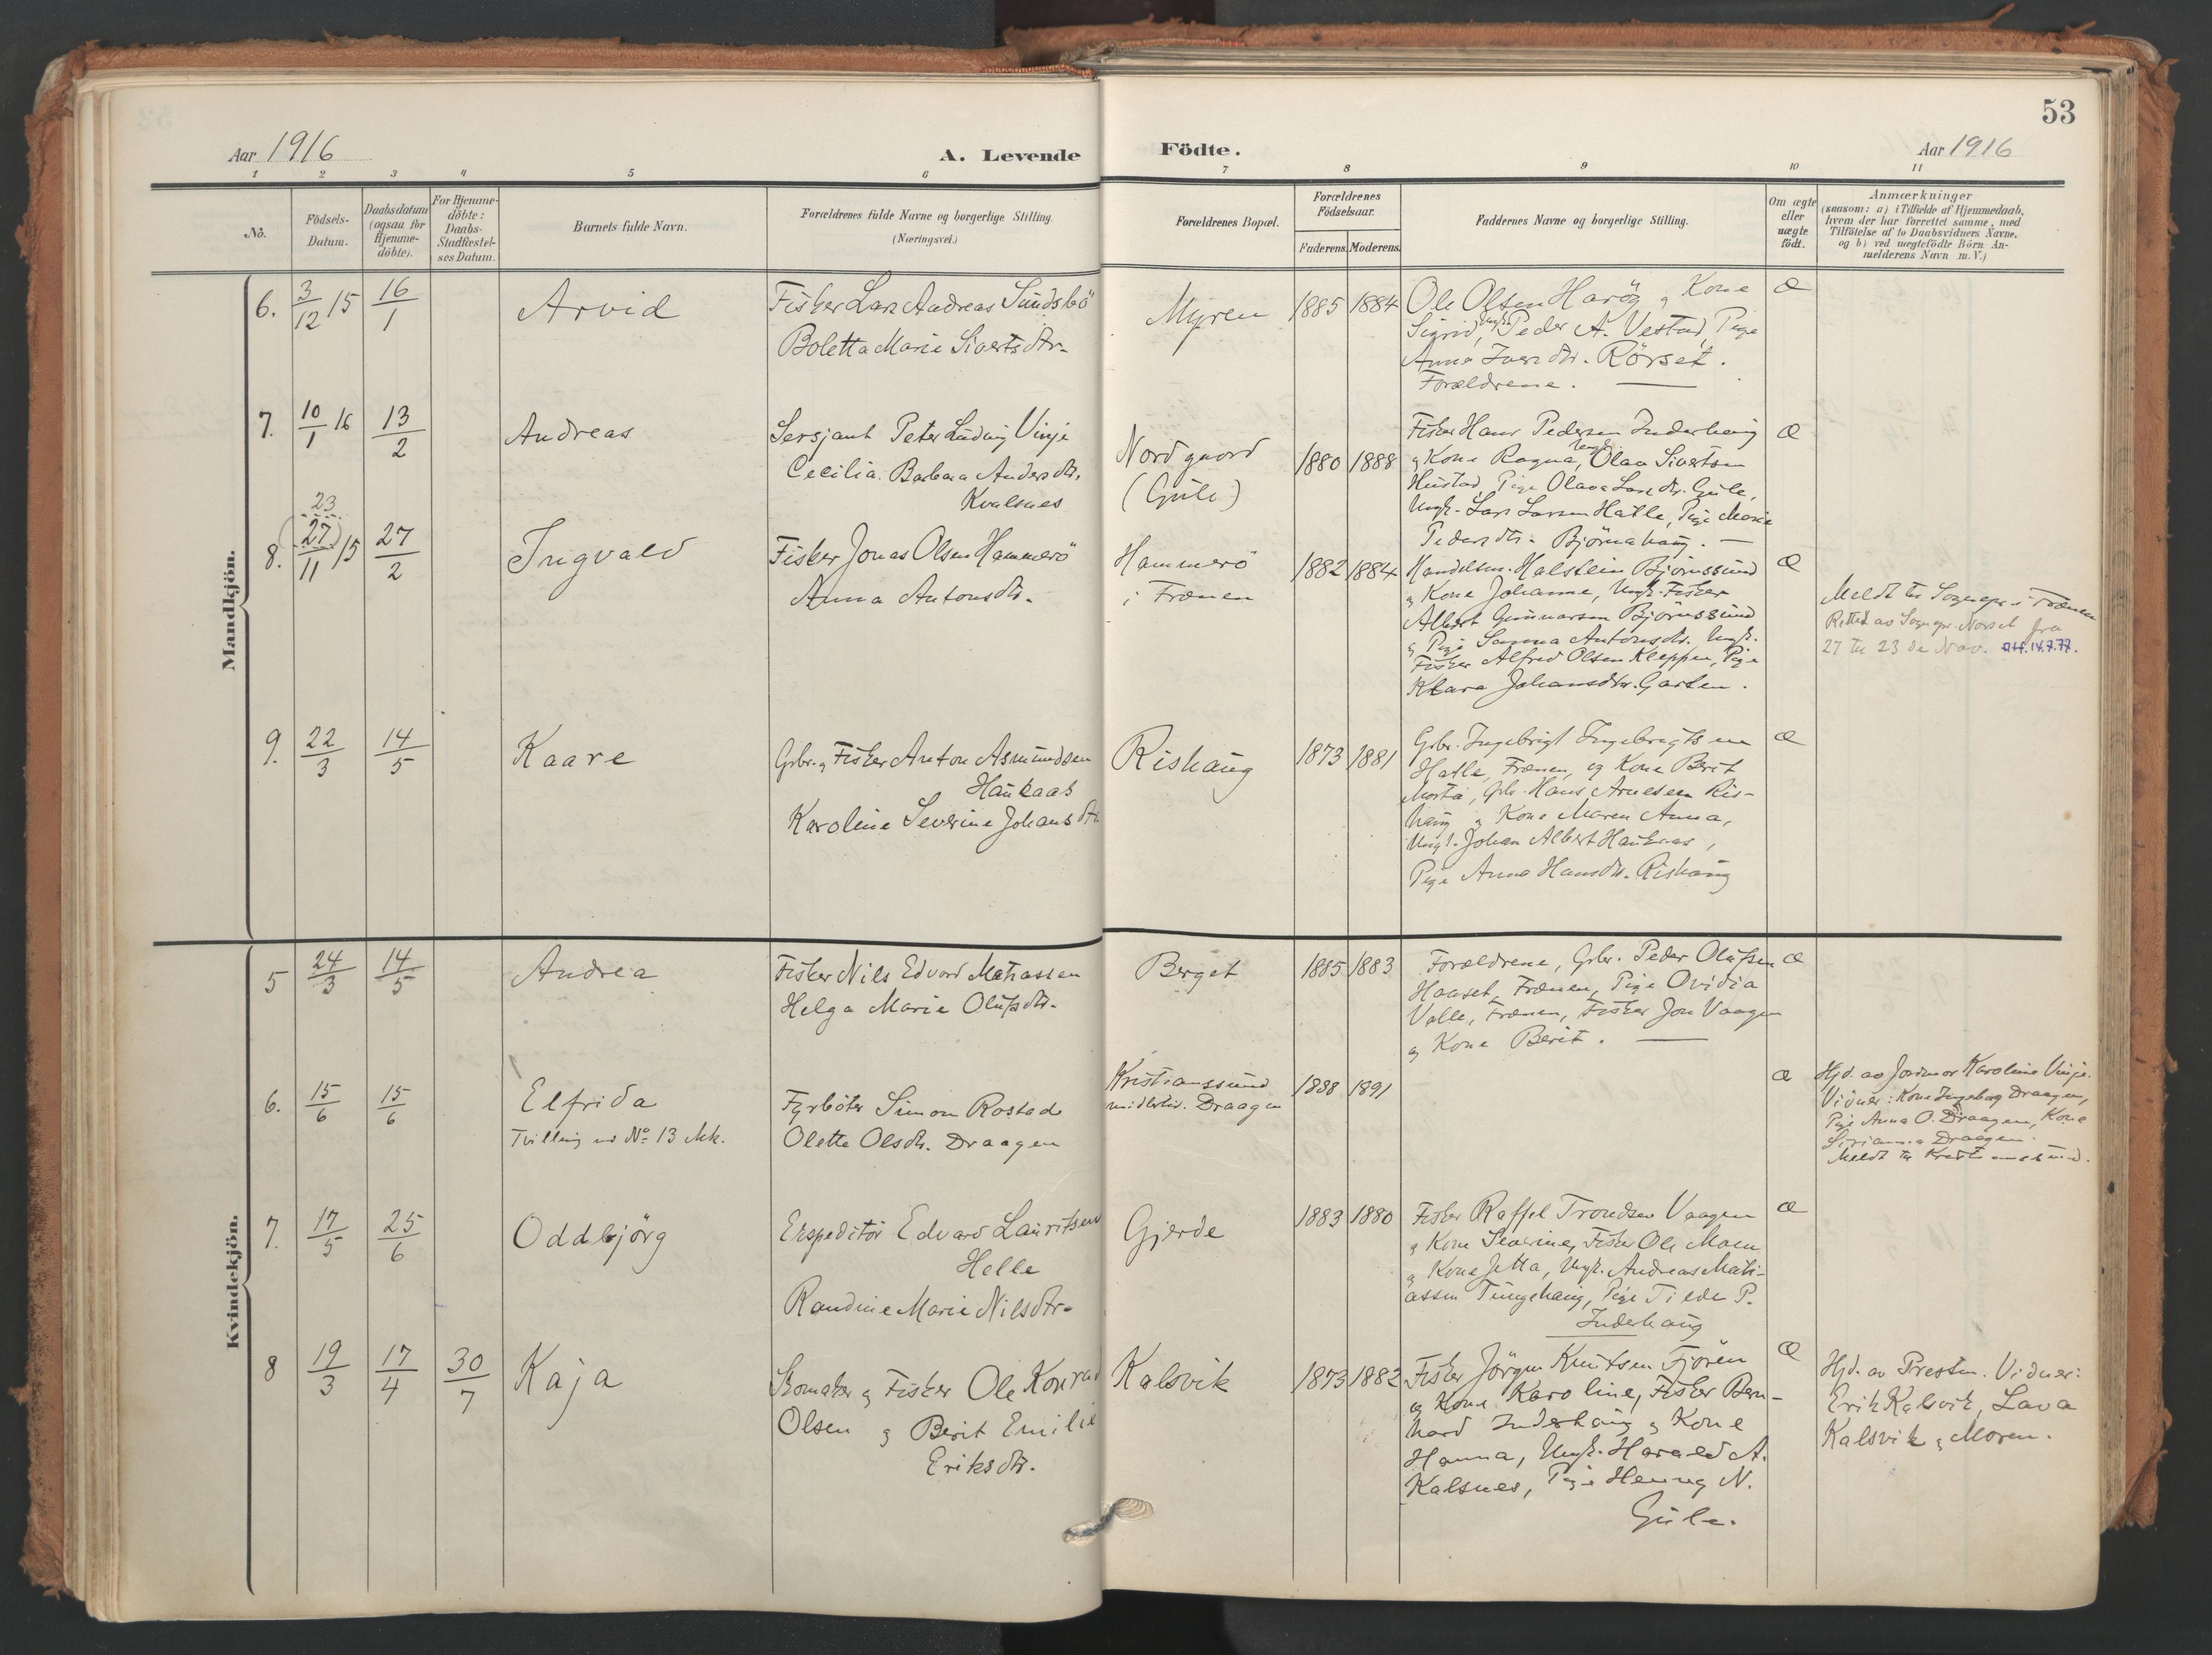 53
Aar 1916
A. Levende Födte.
Aar 1916
1 2 3 4 5 6 7 8 9 10 11
No.
Födsels-Datum.
Daabsdatum (ogsaa for Hjemme-döbte).
For Hjemme-döbte: Daabs-Stadfæstel-ses Datum.
Barnets fulde Navn.
Forældrenes fulde Navne og borgerlige Stilling.
(Næringsvei.)
Forældrenes Bopæl.
Forældrenes Födselsaar.
Faderens. Moderens.
Faddernes Navne og borgerlige Stilling.
Om ægte eller uægte födt.
Anmærkninger
(saasom: a) i Tilfælde af Hjemmedaab,
hvem der har forrettet samme, med
Tilföielse af to Daabsvidners Navne,
og b) ved uægtefödte Börn An-
melderens Navn m. V.)
Mandkjön.
6. 3/12 15 16/1 Arvid
Fisker Lars Andreas Sundsbö
Boletta Marie Sivertsdtr.
Myren 1885 1884
Ole Olsen Harög og Kone
Sigrid, Ungk. Peder A. Vestad, Pige
Anna Iversdtr. Rörset.
Forældrene.
Æ
7. 10/1 16 13/2 Andreas
Sersjant Peter Ludvig Vinje
Cecilia Barbara Andersdtr.
Kvalsnes
Nordgaard
(Gule)
1880 1888
Fisker Hans Pedersen Inderhaug
og Kone Ragna, Ungk. Olav Sivertsen
Hustad, Pige Olava Larsdtr. Gule,
Ungk. Lars Larsen Hatle, Pige Marie
Pedersdtr. Björnahaug.
Æ
8. 23 (27)/11 15 27/2 Ingvald
Fisker Jonas Olsen Hammerö
Anna Antonsdtr.
Hammerö
i Frænen
1882 1884
Handelsm. Halstein Björnssund
og Kone Johanne, Ungk. Fisker
Albert Gunnarsen Björnssund
og Pige Sanna Antonsdtr. Ungk.
Fisker Alfred Olsen Kleppen, Pige
Klara Johansdtr. Garten.
Æ
Meldt til Sognepr. i Frænen
Rettet av Sognepr. Norsel fra
27 til 23 de Nov. 14.7.77.
9. 22/3 14/5 Kaare
Grbr. og Fisker Anton Asmundsen
Haukaas
Karoline Severine Johansdtr.
Rishaug 1873 1881
Grbr. Ingebrigt Ingebrigtsen
Hatle, Frænen, og Kone Berit
Marta, Grbr. Hans Arnesen Ris-
haug og Kone Maren Anna,
Ungk. Johan Albert Haukaas,
Pige Anna Hansdtr. Rishaug
Æ
Kvindekjön.
5 24/3 14/5 Andrea
Fisker Nils Edvard Matiassen
Helga Marie Olufsdtr.
Berget 1885 1883
Forældrene, Grbr. Peder Olufsen
Hauset, Frænen, Pige Ovidia
Valle, Frænen, Fisker Jon Vaagen
og Kone Berit.
Æ
6. 15/6 15/6 Elfrida
Tvilling med No. 13 Mk.
Fyrböter Simon Rostad
Olette Olsdtr. Draagen
Kristianssund
midlertid. Draagen
1888 1891
Æ
Hjd. av Jordmor Karoline Vinje.
Vidner: Kone Ingeborg Draagen,
Pige Anna O. Draagen, Kone
Sirianna Draagen.
Meldt til Kristianssund.
7. 17/5 25/6 Oddbjörg
Ekspeditör Edvard Lauritsen
Helle
Randine Marie Nilsdtr.
Gjerde 1883 1880
Fisker Raffel Trondsen Vaagen
og Kone Severine, Fisker Ole Moen
og Kone Jetta, Ungk. Andreas Mati-
assen Tungehaug, Pige Tilde P.
Inderhaug
Æ
8 19/3 17/4 30/7 Kaja
Skomaker og Fisker Ole Konrad
Olsen og Berit Emilie
Eriksdtr.
Kalsvik 1873 1882
Fisker Jörgen Knutsen Fjören
og Kone Karoline, Fisker Bern-
hard Inderhaug og Kone
Hanna, Ungk. Harald A.
Kalsnes, Pige Henny N.
Gule.
Æ
Hjd. av Presten. Vidner:
Erik Kalsvik, Lava
Kalsvik og Moren.